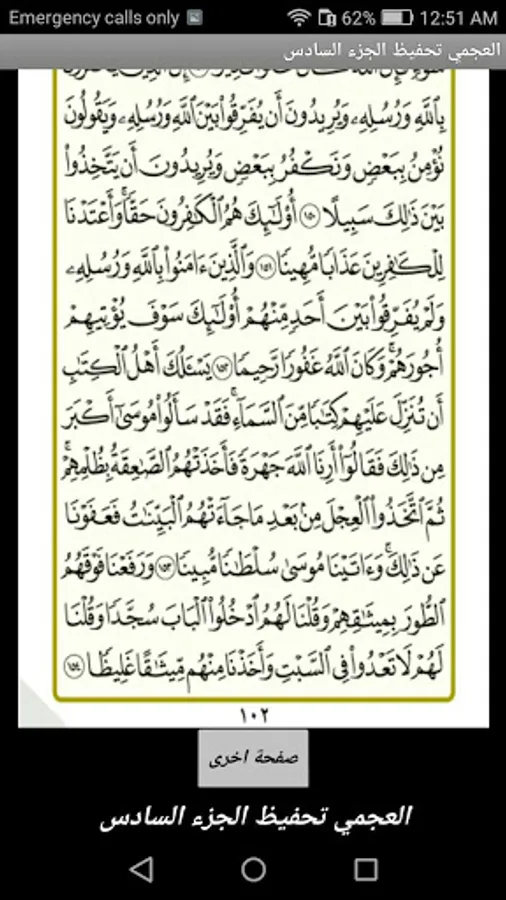 Emergency calls only 62% 12:51 AM
العجمي تحفيظ الجزء السادس
بِاللَّهِ وَرُسُلِهِۦ وَيُرِيدُونَ أَن يُفَرِّقُوا۟ بَيْنَ ٱللَّهِ وَرُسُلِهِۦ وَيَقُولُونَ
نُؤْمِنُ بِبَعْضٍ وَنَكْفُرُ بِبَعْضٍ وَيُرِيدُونَ أَن يَتَّخِذُوا۟
بَيْنَ ذَٰلِكَ سَبِيلًا ١٥٠ أُو۟لَٰٓئِكَ هُمُ ٱلْكَٰفِرُونَ حَقًّا ۚ وَأَعْتَدْنَا
لِلْكَٰفِرِينَ عَذَابًا مُّهِينًا ١٥١ وَٱلَّذِينَ ءَامَنُوا۟ بِٱللَّهِ وَرُسُلِهِۦ
وَلَمْ يُفَرِّقُوا۟ بَيْنَ أَحَدٍ مِّنْهُمْ أُو۟لَٰٓئِكَ سَوْفَ يُؤْتِيهِمْ
أُجُورَهُمْ ۗ وَكَانَ ٱللَّهُ غَفُورًا رَّحِيمًا ١٥٢ يَسْـَٔلُكَ أَهْلُ ٱلْكِتَٰبِ
أَن تُنَزِّلَ عَلَيْهِمْ كِتَٰبًا مِّنَ ٱلسَّمَآءِ ۚ فَقَدْ سَأَلُوا۟ مُوسَىٰٓ أَكْبَرَ
مِن ذَٰلِكَ فَقَالُوٓا۟ أَرِنَا ٱللَّهَ جَهْرَةً فَأَخَذَتْهُمُ ٱلصَّٰعِقَةُ بِظُلْمِهِمْ ۚ
ثُمَّ ٱتَّخَذُوا۟ ٱلْعِجْلَ مِنۢ بَعْدِ مَا جَآءَتْهُمُ ٱلْبَيِّنَٰتُ فَعَفَوْنَا
عَن ذَٰلِكَ ۚ وَءَاتَيْنَا مُوسَىٰ سُلْطَٰنًا مُّبِينًا ١٥٣ وَرَفَعْنَا فَوْقَهُمُ
ٱلطُّورَ بِمِيثَٰقِهِمْ وَقُلْنَا لَهُمُ ٱدْخُلُوا۟ ٱلْبَابَ سُجَّدًا وَقُلْنَا
لَهُمْ لَا تَعْدُوا۟ فِى ٱلسَّبْتِ وَأَخَذْنَا مِنْهُم مِّيثَٰقًا غَلِيظًا ١٥٤
١٠٢
صفحة اخرى
العجمي تحفيظ الجزء السادس